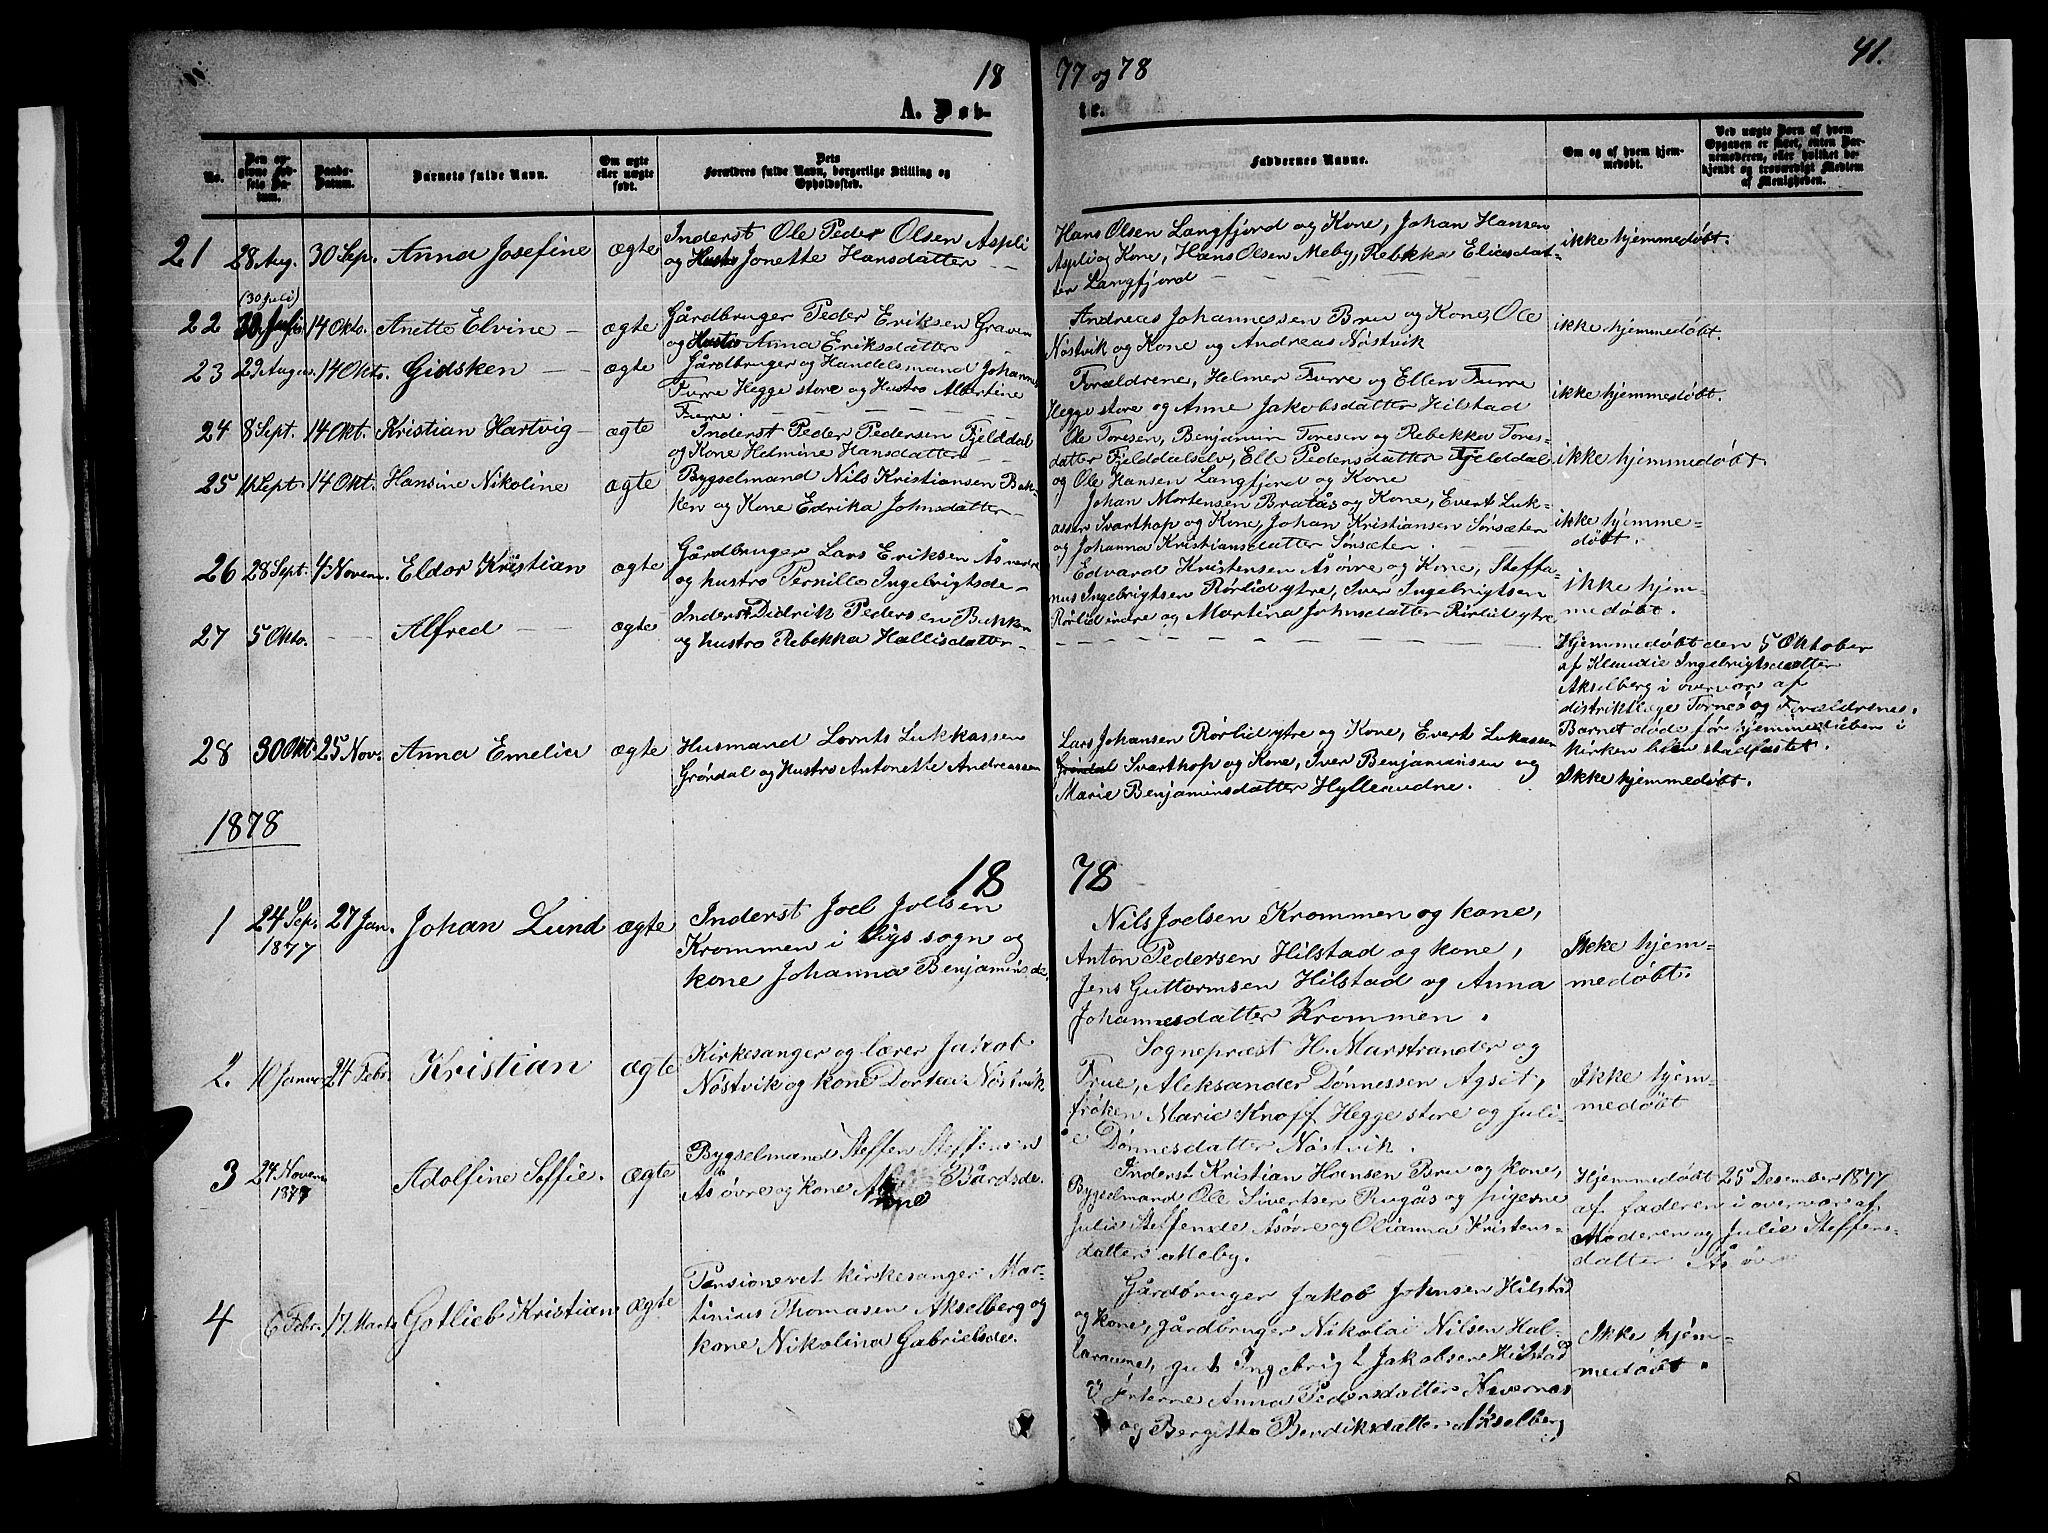 18 77 og 78
41.
A. Døb-
te.
No.
Den opgivne Fødsels Datum.
Daabs-Datum.
Barnets fulde Navn.
Om ægte eller uægte født.
Dets Forældres fulde Navn, borgerlige Stilling og Opholdssted.
Faddernes Navne.
Om og af hvem hjemmedøbt.
Ved uægte Børn af hvem Opgaven er skeet, enten Barnemoderen, eller hvilket bekjendt og troværdigt Medlem af Menigheden.
21 28 Aug. 30 Sep. Anna Josefine ægte
Inderst Ole Peder Olsen Aspli
og Hustro Jonette Hansdatter
Hans Olsen Langfjord og Kone, Johan Hansen
Aspli og Kone, Hans Olsen Meby, Rebkka Eliesdat-
ter Langfjord
ikke hjemmedøbt.
(30 Juli)
22 14 Okto. Anette Elvine ægte
Gårdbruger Peder Eriksen Graven
og Hustro Anna Eriksdatter
Andreas Johannessen Bru og Kone, Ole
Nøstvik og Kone og Andreas Nøstvik
ikke hjemmedøbt.
23 29 Augus. 14 Okto. Gidsken ægte
Gårdbruger og Handelsmand Johannes
Furre Hegge store og Hustro Albertine
Furre.
Forældrene, Helmer Furre og Ellen Furre
Hegge store og Anne Jakobsdatter Hilstad
ikke hjemmedøbt.
24 8 Sept. 14 Okt. Kristian Hartvig ægte
Inderst Peder Pedersen Fjelddal
og Kone Helmine Hansdatter
Ole Toresen, Benjamin Toresen og Rebekka Tores-
datter Fjelddalselv, Elle Pedersdatter Fjelddal
og Ole Hansen Langfjord og Kone
ikke hjemmedøbt.
25 11 Sept. 14 Okt. Hansine Nikoline ægte
Bygselmand Nils Kristiansen Bak-
ken og Kone Edrika Johnsdatter
Johan Mortensen Bratås og Kone, Evert Luk-
assen Svarthop og Kone, Johan Kristiansen Sørsæter
og Johanna Kristiansdatter Sørsæter.
ikke hjemme-
døbt.
26 28 Sept. 4 Novem. Eldor Kristian ægte
Gårdbruger Lars Eriksen Åsnedre
og hustro Pernille Ingebrigtsde
Edvard Kristensen Åsøvre og Kone, Steffa-
nus Ingebrigtsen Rørlid ytre, Iver Ingebrigtsen
Rørlid indre og Martina Johnsdatter Rørlid ytre
ikke hjem-
medøbt.
27 5 Okto. Alfred ægte
Inderst Didrik Pedersen Bakken
og hustro Rebekka Hallisdatter
Hjemmedøbt den 5 Oktober
af Klaudie Ingebrigtsdatter
Akselberg i overvær af
distriktlæge Tornes og Forældrene.
Barnet døde før hjemmedåben i
kirken blev stadfæstet.
28 30 Okt. 25 Nov. Anna Emelie ægte
Husmand Lornts Lukkassen
Grøndal og Hustro Antonette Andreassen
Lars Johansen Rørlid ytre og Kone, Evert Lukassen
Grøndal Svarthop og Kone, Iver Benjaminsen og
Marie Benjaminsdatter Hylleaudne.
Ikke hjemmedøbt.
1878
18 78
1 24 Sep. 1877 27 Jan. Johan Lund ægte
Inderst Joel Joelsen
Krommen i Vigs sogn og
kone Johanna Benjaminsde.
Nils Joelsen Krommen og kone,
Anton Pedersen Hilstad og kone,
Jens Guttormsen Hilstad og Anna
Johannesdatter Krommen.
Ikke hjem-
medøbt.
2. 10 Janvar 24 Febr. Kristian ægte
Kirkesanger og lærer Jakob
Nøstvik og kone Dortea Nøstvik
Sognepræst H. Marstrander og
Frue, Aleksander Dønnessen Agset,
frøken Marie Knoff Hegge store og Juli-
e Dønnesdatter Nøstvik.
Ikke hjem-
medøbt
3 24 Novem 1877 Adolfine Soffie. ægte
Bygselmand Steffen Steffensen
Åsøvre og kone Bårdsde.
Inderst Kristian Hansen Bru og kone,
Bygselmand Ole Sivertsen Rugås og pigerne
Julie Steffensde Åsøvre og Olianna Kristens-
datter Meby.
Hjemmedøbt 25 Desember 1877
af faderen i overvær af
Moderen og Julie Steffens-
datter Åsøvre
4 6 Febr. 17 Marts Gotlieb Kristian ægte
Pensioneret kirkesanger Mar-
tinius Thomasen Akselberg og
kone Nikolina Gabrielsde.
Gårdbruger Jakob Johnsen Hilstad
og kone, gårdbruger Nikolai Nilsen Hal-
laraune, gut Ingebrigt Jakobsen Hilstad
Anna Pedersdatter Kvernøs
og Bergitte Bendiksdatter Akselberg
Ikke hjem-
medøbt.